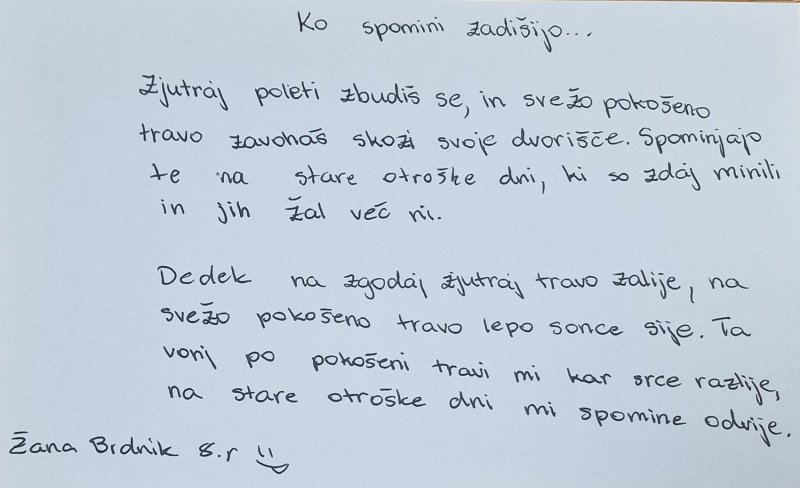 Ko spomini zadišijo...
Zjutraj poleti zbudiš se, in svežo pokošeno
travo zavohaš skozi svoje dvorišče. Spominjajo
te na stare otroške dni, ki so zdaj minili
in jih žal več ni.
Dedek na zgodaj zjutraj travo zalije, na
svežo pokošeno travo lepo sonce sije. Ta
vonj po pokošeni travi mi kar srce razlije,
na stare otroške dni mi spomine odvije.
Žana Brdnik 8.r